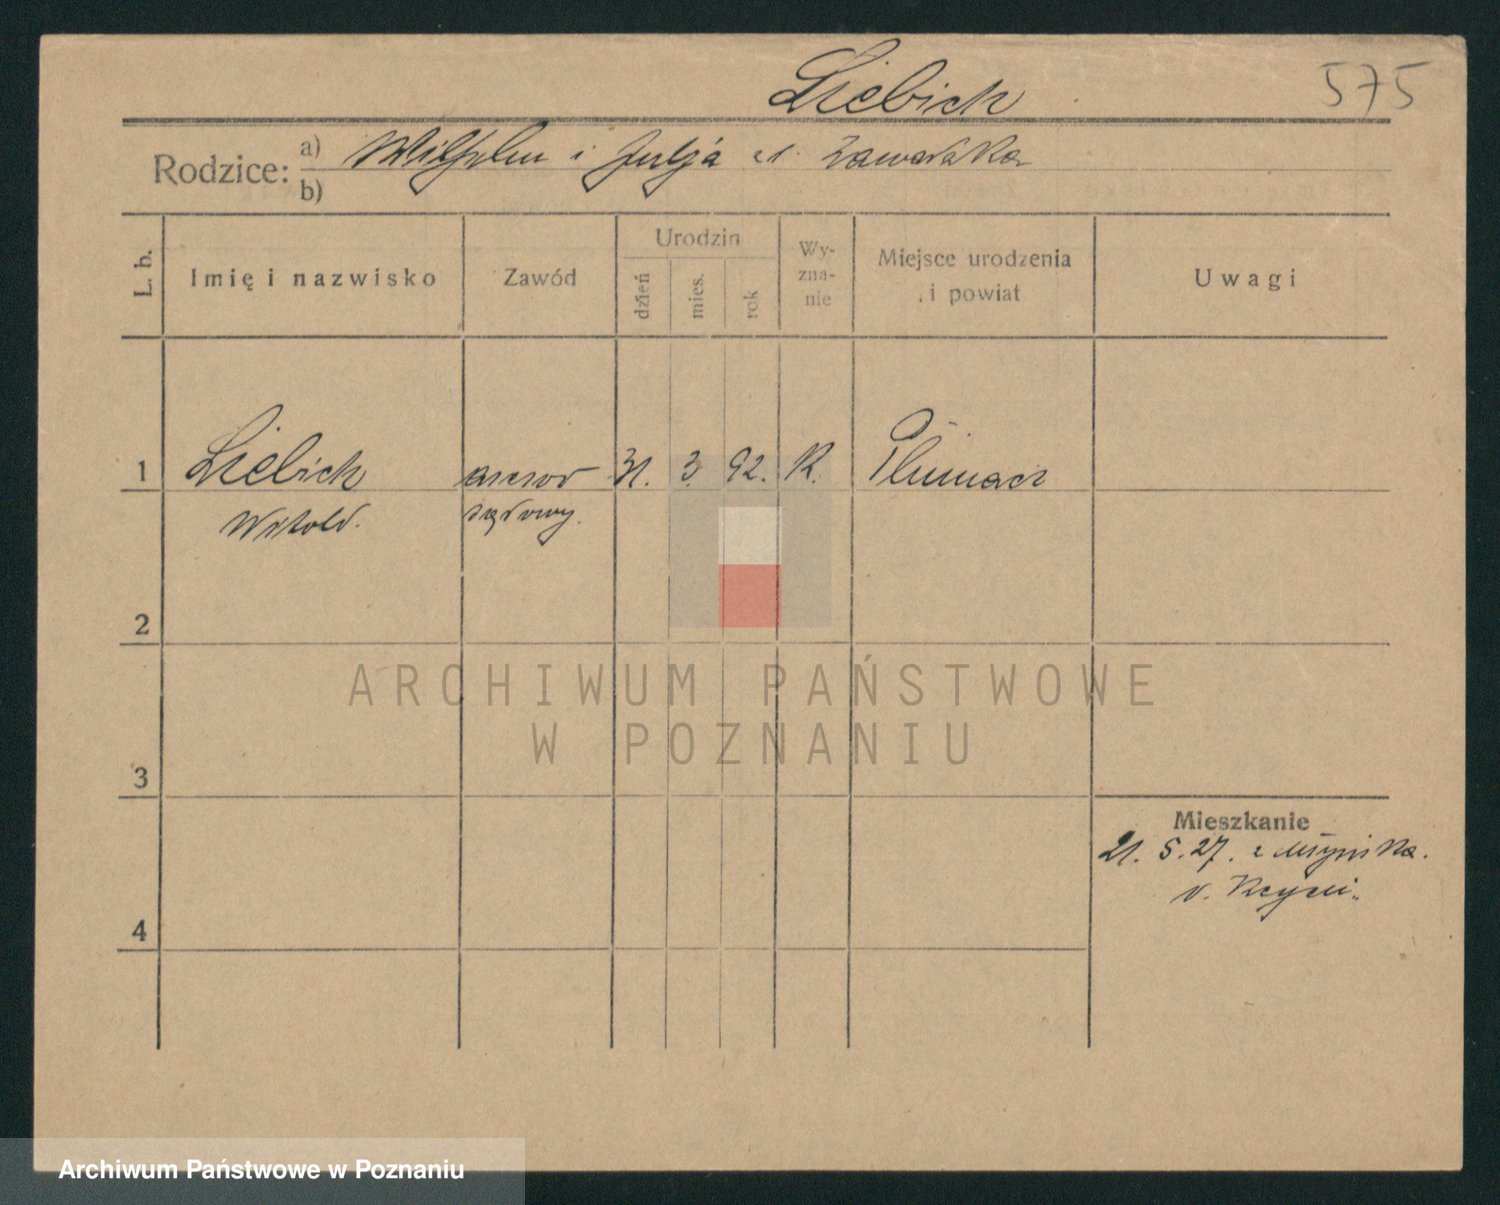 Liebich 575
Rodzice: a) Wilhelm i Julja z d. Zawadzka
b)
L. b. Imię i nazwisko Zawód Urodzin dzień mies. rok Wyzna-nie Miejsce urodzenia i powiat Uwagi
1 Liebich asesor 31. 3. 92. K. Tłumacz
Witold. sądowy.
2
ARCHIWUM PAŃSTWOWE
W POZNANIU
3
Mieszkanie
21. 5. 27. z
v. Kcyni.
4
Archiwum Państwowe w Poznaniu